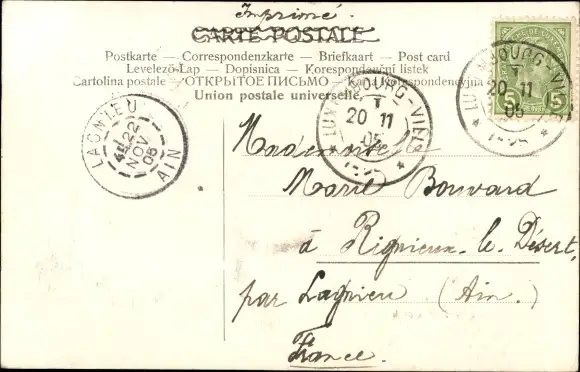 Imprimé.
CARTE POSTALE
Postkarte — Correspondenzkarte — Briefkaart — Post card
Levelező-Lap — Dopisnica — Korespondenční listek
Cartolina postale — ОТКРЫТОЕ ПИСЬМО — Karta Korespondencyjna
Union postale universelle.
LUXEMBOURG-VILLE
20 11
05
LUXEMBOURG-VILLE
20 11
05
5 5
LAGNIEU
22
NOV
05
AIN
Mademoiselle
Marie Bouvard
à Rignieux-le-Désert,
par Lagnieu (Ain)
France.